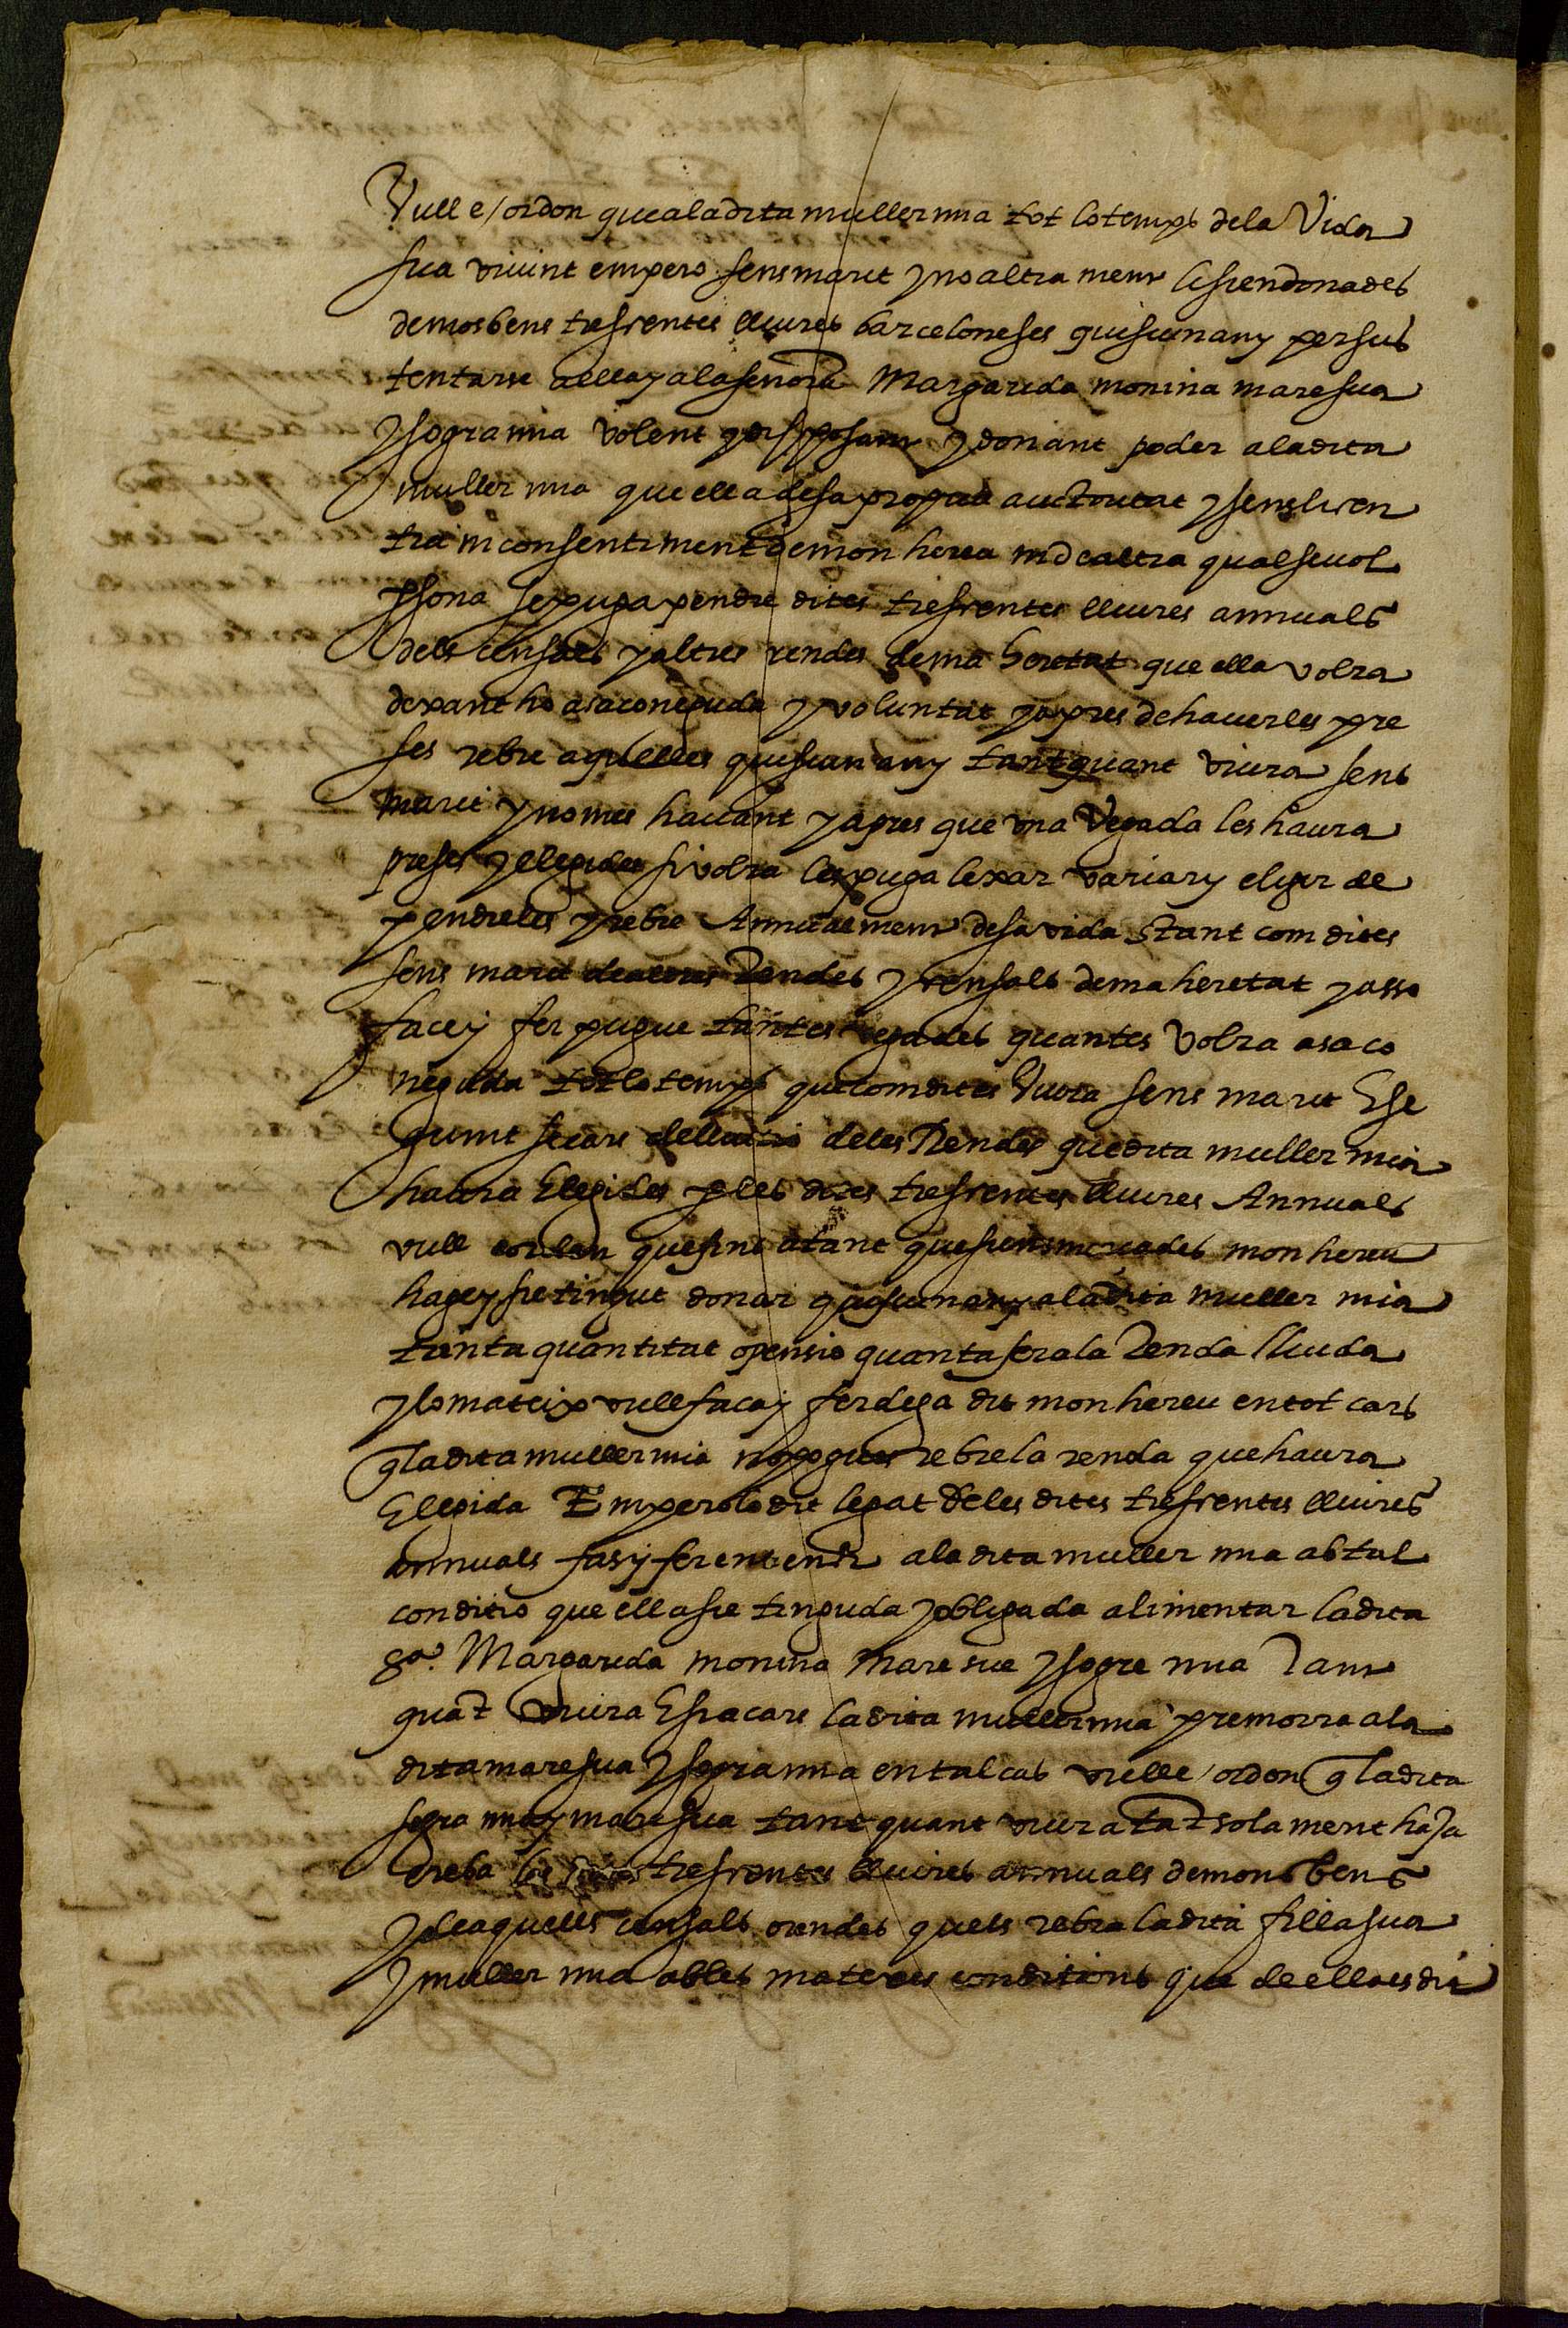 Vull e / ordon que a la dita muller mia tot lo temps de la Vida
sua vivint empero sens marit y no altra ment li sien donades
de mos bens tresentes lliures barceloneses quiscun any per sus
tentarse a ella y a la senora Margarida monina mare sua
y sogra mia volent y dispposant y donant poder a la dita
muller mia que ella de sa propia auctoritat y sens licen
tia ni consentiment de mon hereu ni de altra qualsevol
psona se puga pendre dites tresentes lliures annuals
dels censals y altres rendes de ma heretat que ella volra
dexant ho a sa coneguda y voluntat y apres de haverles pre
ses rebre aquelles quiscun any tant quant viura sens
marit y no mes havant y apres que una Vegada les haura
preses y elegides si volra les puga lexar variar y eligir de
pendreles y rebre Annualment de sa vida stant com dit es
sens marit de altres Rendes y censals de ma heretat y asso
face y fer pugue tantes vegades quantes volra a sa co
neguda tot lo temps que com dit es Viura sens marit E se
guint se cars de lluitio de les Rendes que dita muller mia
haura Elegides p les dites tresentes lliures Annuals
vull e orden que fins a tant que sien smersades mon hereu
hage y sie tingut donar quiscun any a la dita muller mia
tanta quantitat o pensio quanta sera la Renda lluida
y lo mateix vull faca y fer dega dit mon hereu en tot cars
q la dita muller mia no pogues rebre la renda que haura
Elegida Empero lo dit legat de les dites tresentes lliures
annuals fas y fer entench a la dita muller mia ab tal
conditio que ella sie tinguda y obligada alimentar la dita
sa. Margarida monina Mare sue y sogre mia Tant
quat viura E si a cars la dita muller mia premorra a la
dita mare sua y sogra mia en tal cas vull e / ordon q la dita
sogra mia y mare sua tant quant viura tat solament haja
e reba les dites tresentes lliures annuals de mons bens
y de aquells censals o rendes quels rebia la dita filla sua
y muller mia ab les mateixes conditions que de ella es dit